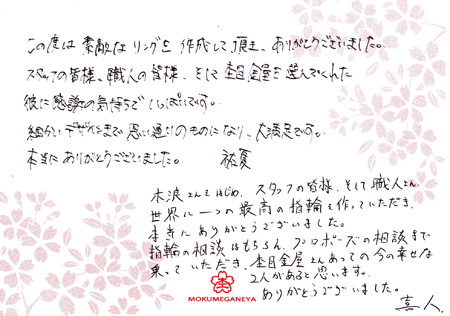 この度は素敵なリングを作成して頂き、ありがとうございました。
スタッフの皆様、職人の皆様、そして杢目金屋を選んでくれた
彼に感謝の気持ちでいっぱいです。
細かいデザインまで思い通りのものになり、大満足です。
本当にありがとうございました。 祐夏
木波さんをはじめ、スタッフの皆様、そして職人さん
世界に一つの最高の指輪を作っていただき、
本当にありがとうございました。
指輪の相談はもちろん、プロポーズの相談まで
乗っていただき、杢目金屋さんあっての今の幸せな
2人があると思います。
ありがとうございました。
喜人
MOKUMEGANEYA